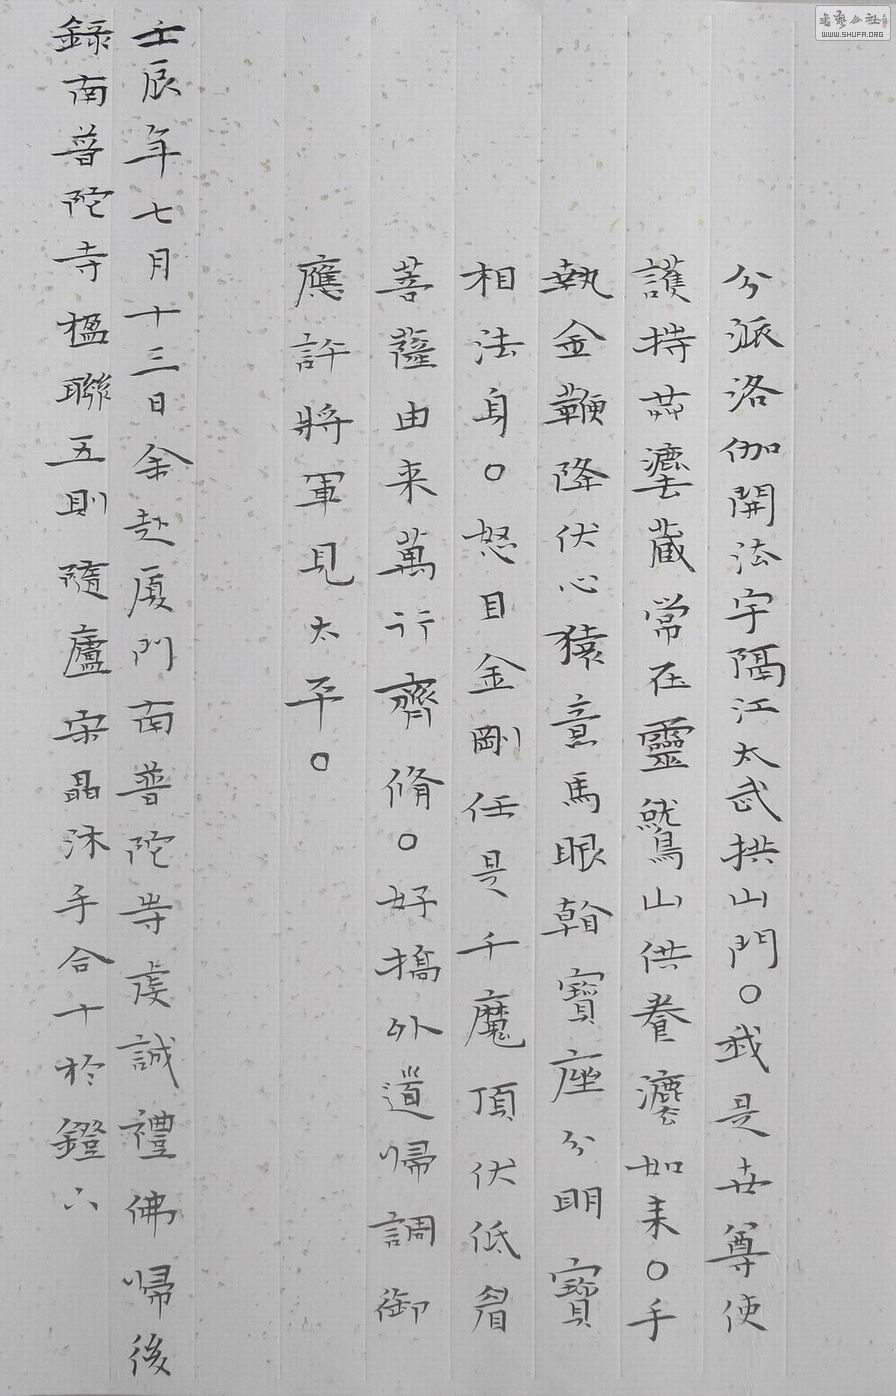 分派洛伽開法宇隔江太武拱山門○我是世尊使
護持燕壘藏常在靈鷲山供養如来○手
執金鞭降伏心猿意馬眼翰寶座分明寶
相法身○怒目金剛任是千魔頂伏低眉
菩薩由来萬行齊脩○好攜外道歸調御
應許將軍見太平○
壬辰年七月十三日余赴厦門南普陀寺虔誠禮佛歸後
錄南普陀寺楹聯五則隨廬宋晶沐手合十於鐙下
書藝公社
WWW.SHUFA.ORG